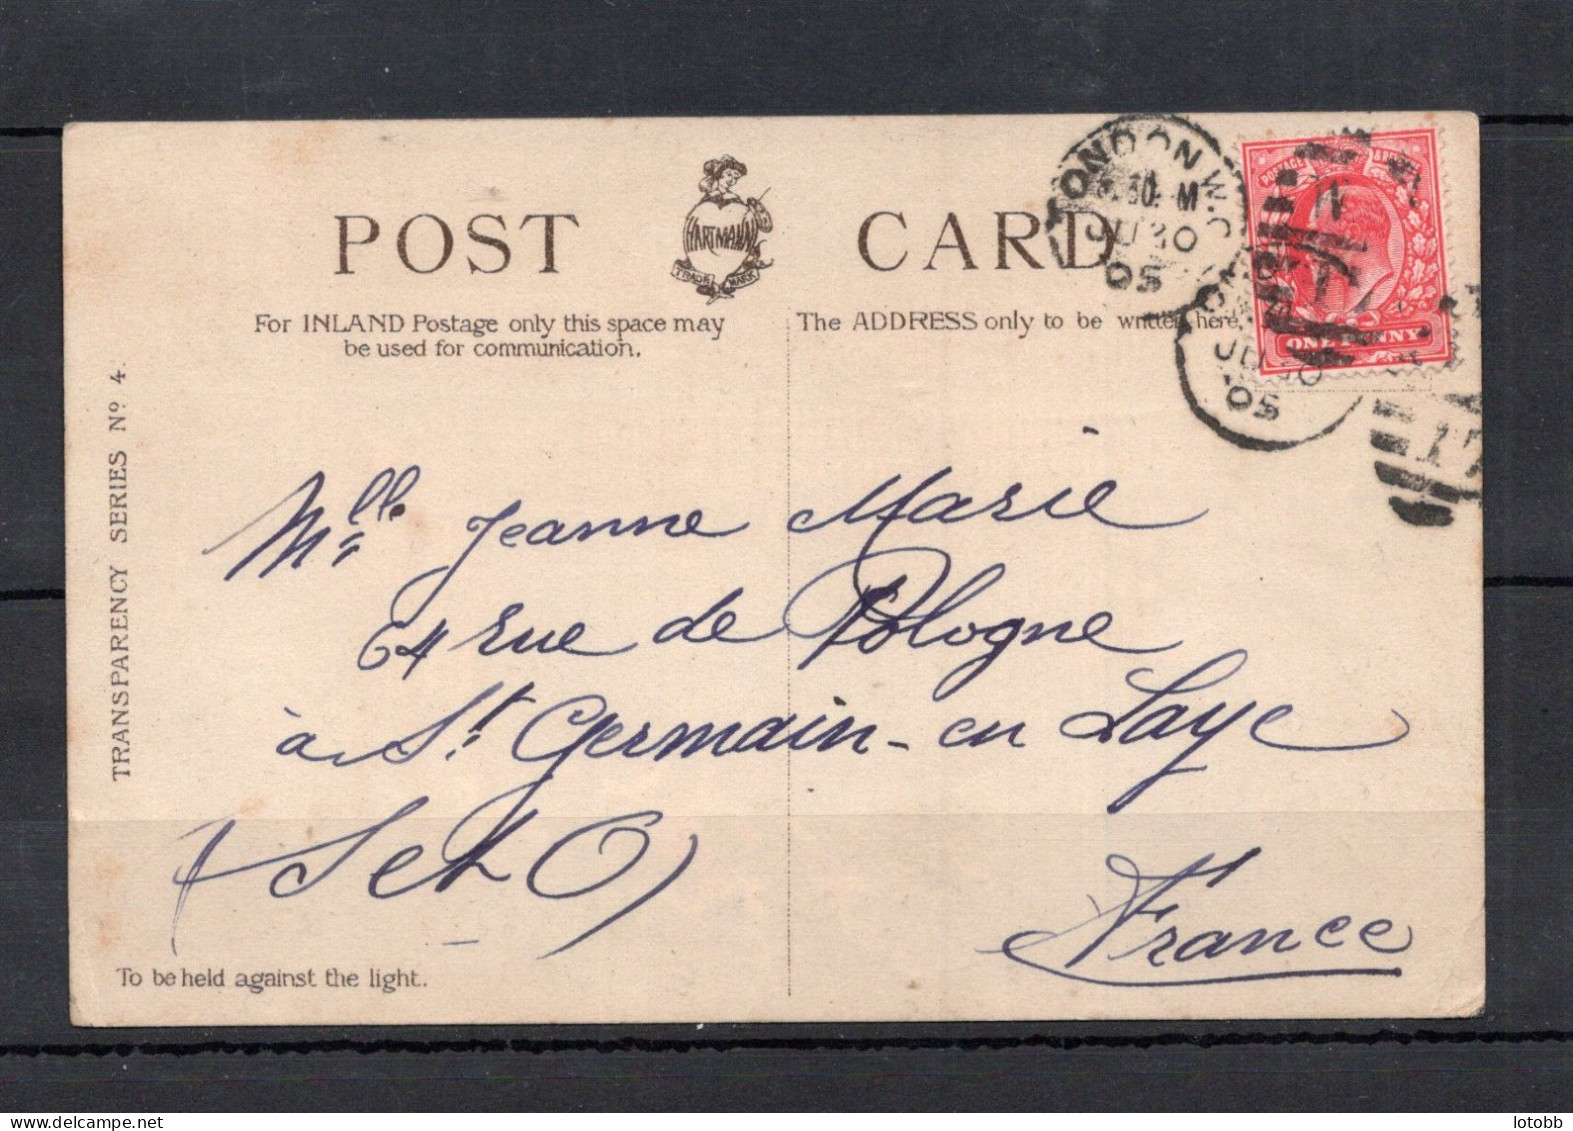 POST CARD
HARTMANN
TRADE MARK
For INLAND Postage only this space may
be used for communication.
The ADDRESS only to be written here.
TRANSPARENCY SERIES Nº 4.
LONDON W.C.
JU 30
05
JU 30
05
POSTAGE & REVENUE
ONE PENNY
17
Mlle Jeanne Marie
64 rue de Pologne
à St Germain-en Laye
(S et O)
France
To be held against the light.
lotobb